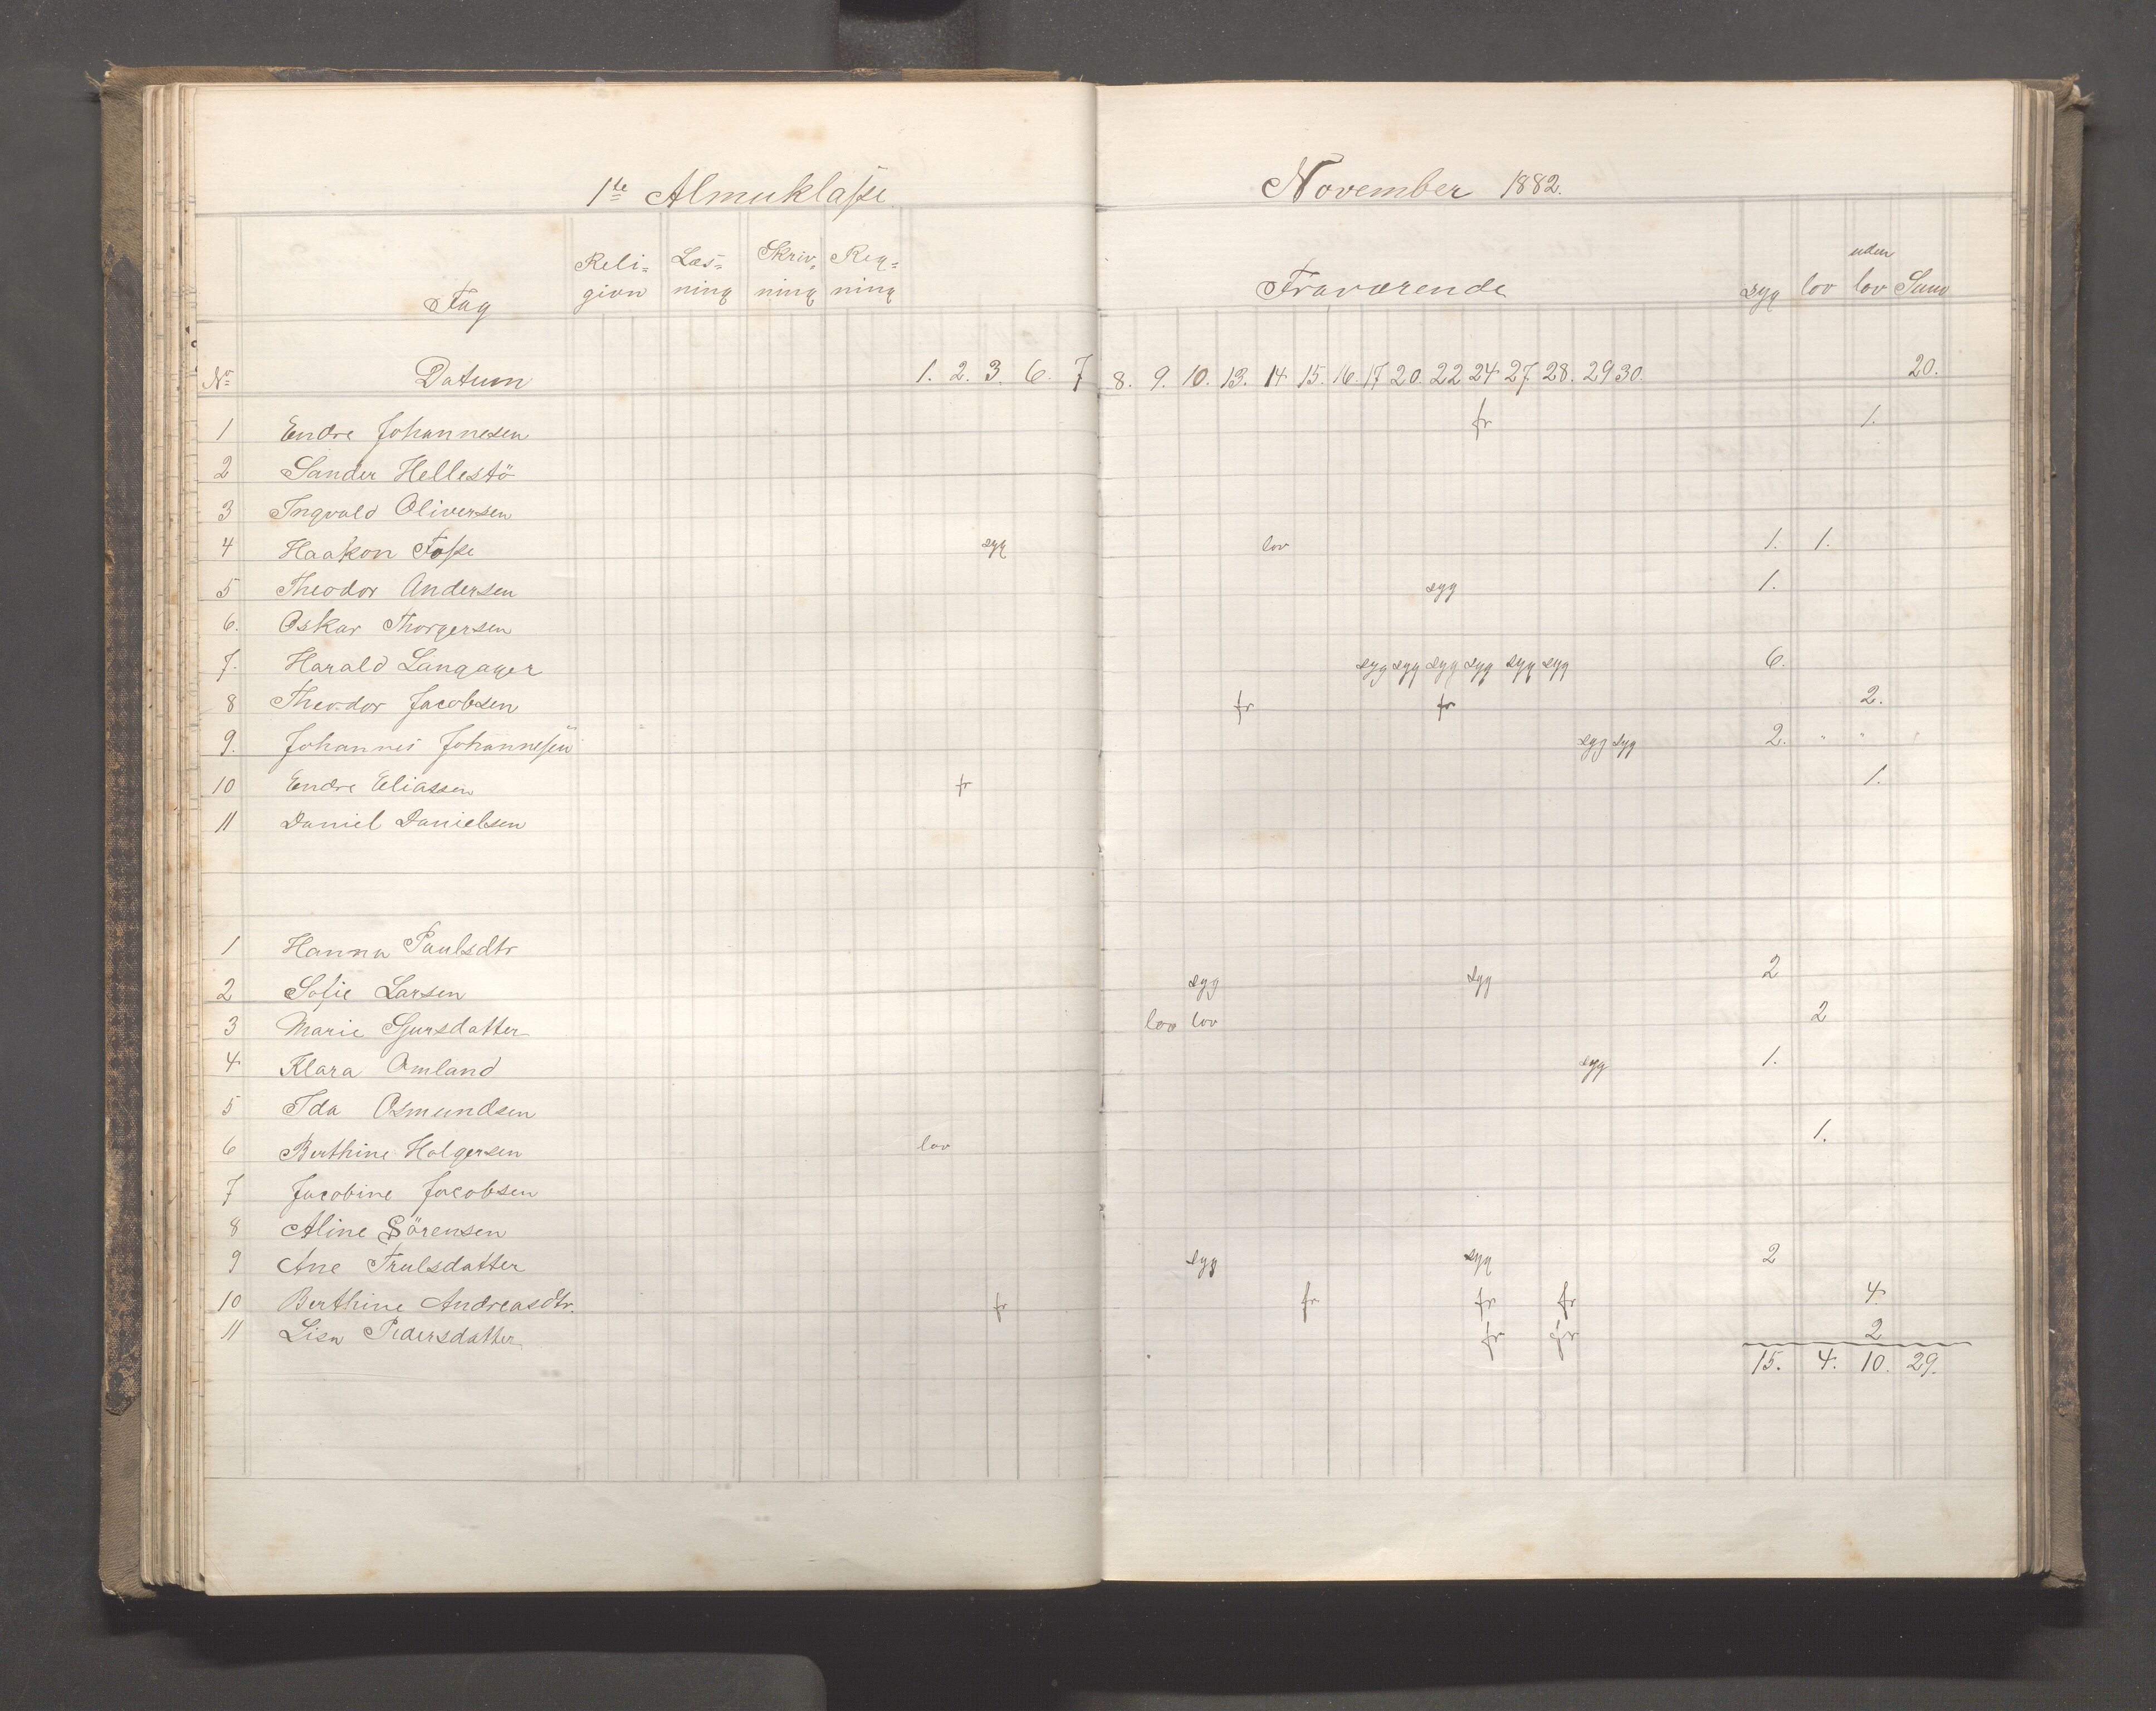 1te Almuklasse November 1882.
Reli= Læs= Skriv= Reg= uden
Fag gion ning ning ning Fraværende syg lov lov Sum
No Datum 1. 2. 3. 6. 7 8. 9. 10. 13. 14 15. 16. 17 20. 22 24 27. 28. 29 30. 20.
1 Endre Johannesen fr 1.
2 Sander Hellestö
3 Ingvald Oliversen
4 Haakon Fosse syg lov 1. 1.
5 Theodor Andersen syg 1.
6. Oskar Thorgersen
7. Harald Langager syg syg syg syg syg syg 6.
8 Theodor Jacobsen fr fr 2.
9. Johannes Johannesen syg syg 2. " "
10 Endre Eliassen fr 1.
11 Daniel Danielsen
1 Hanna Paulsdtr
2 Sofie Larsen syg syg 2
3 Marie Sjursdatter lov lov 2
4 Klara Omland syg 1.
5 Ida Osmundsen
6 Berthine Holgersen lov 1.
7 Jacobine Jacobsen
8 Aline Sörensen
9 Ane Trulsdatter syg syg 2
10 Berthine Andreasdtr. fr fr fr fr 4
11 Lisa Pedersdatter fr fr 2
15. 4. 10. 29.